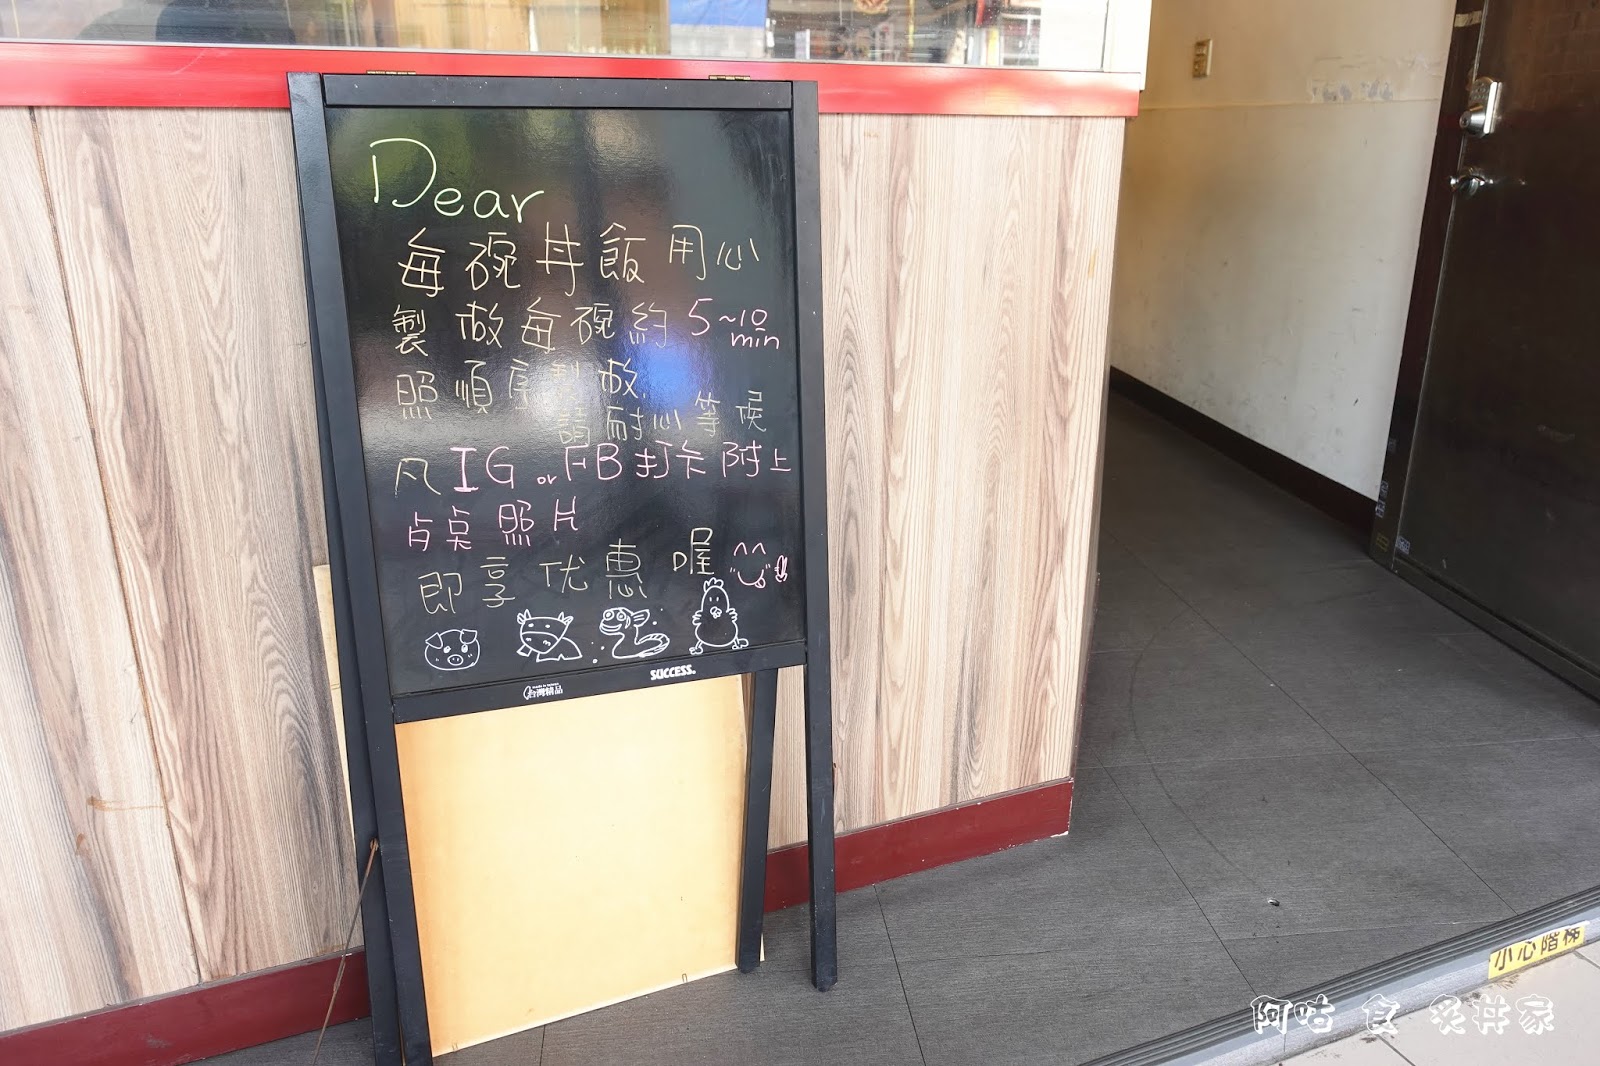 Dear
每碗丼飯用心
製做每碗約5~10min
照順序製做
請耐心等候
凡IG or FB打卡附上
占桌照片
即享优惠喔
SUCCESS.
台灣精品
小心階梯
阿咕 食 炙丼家